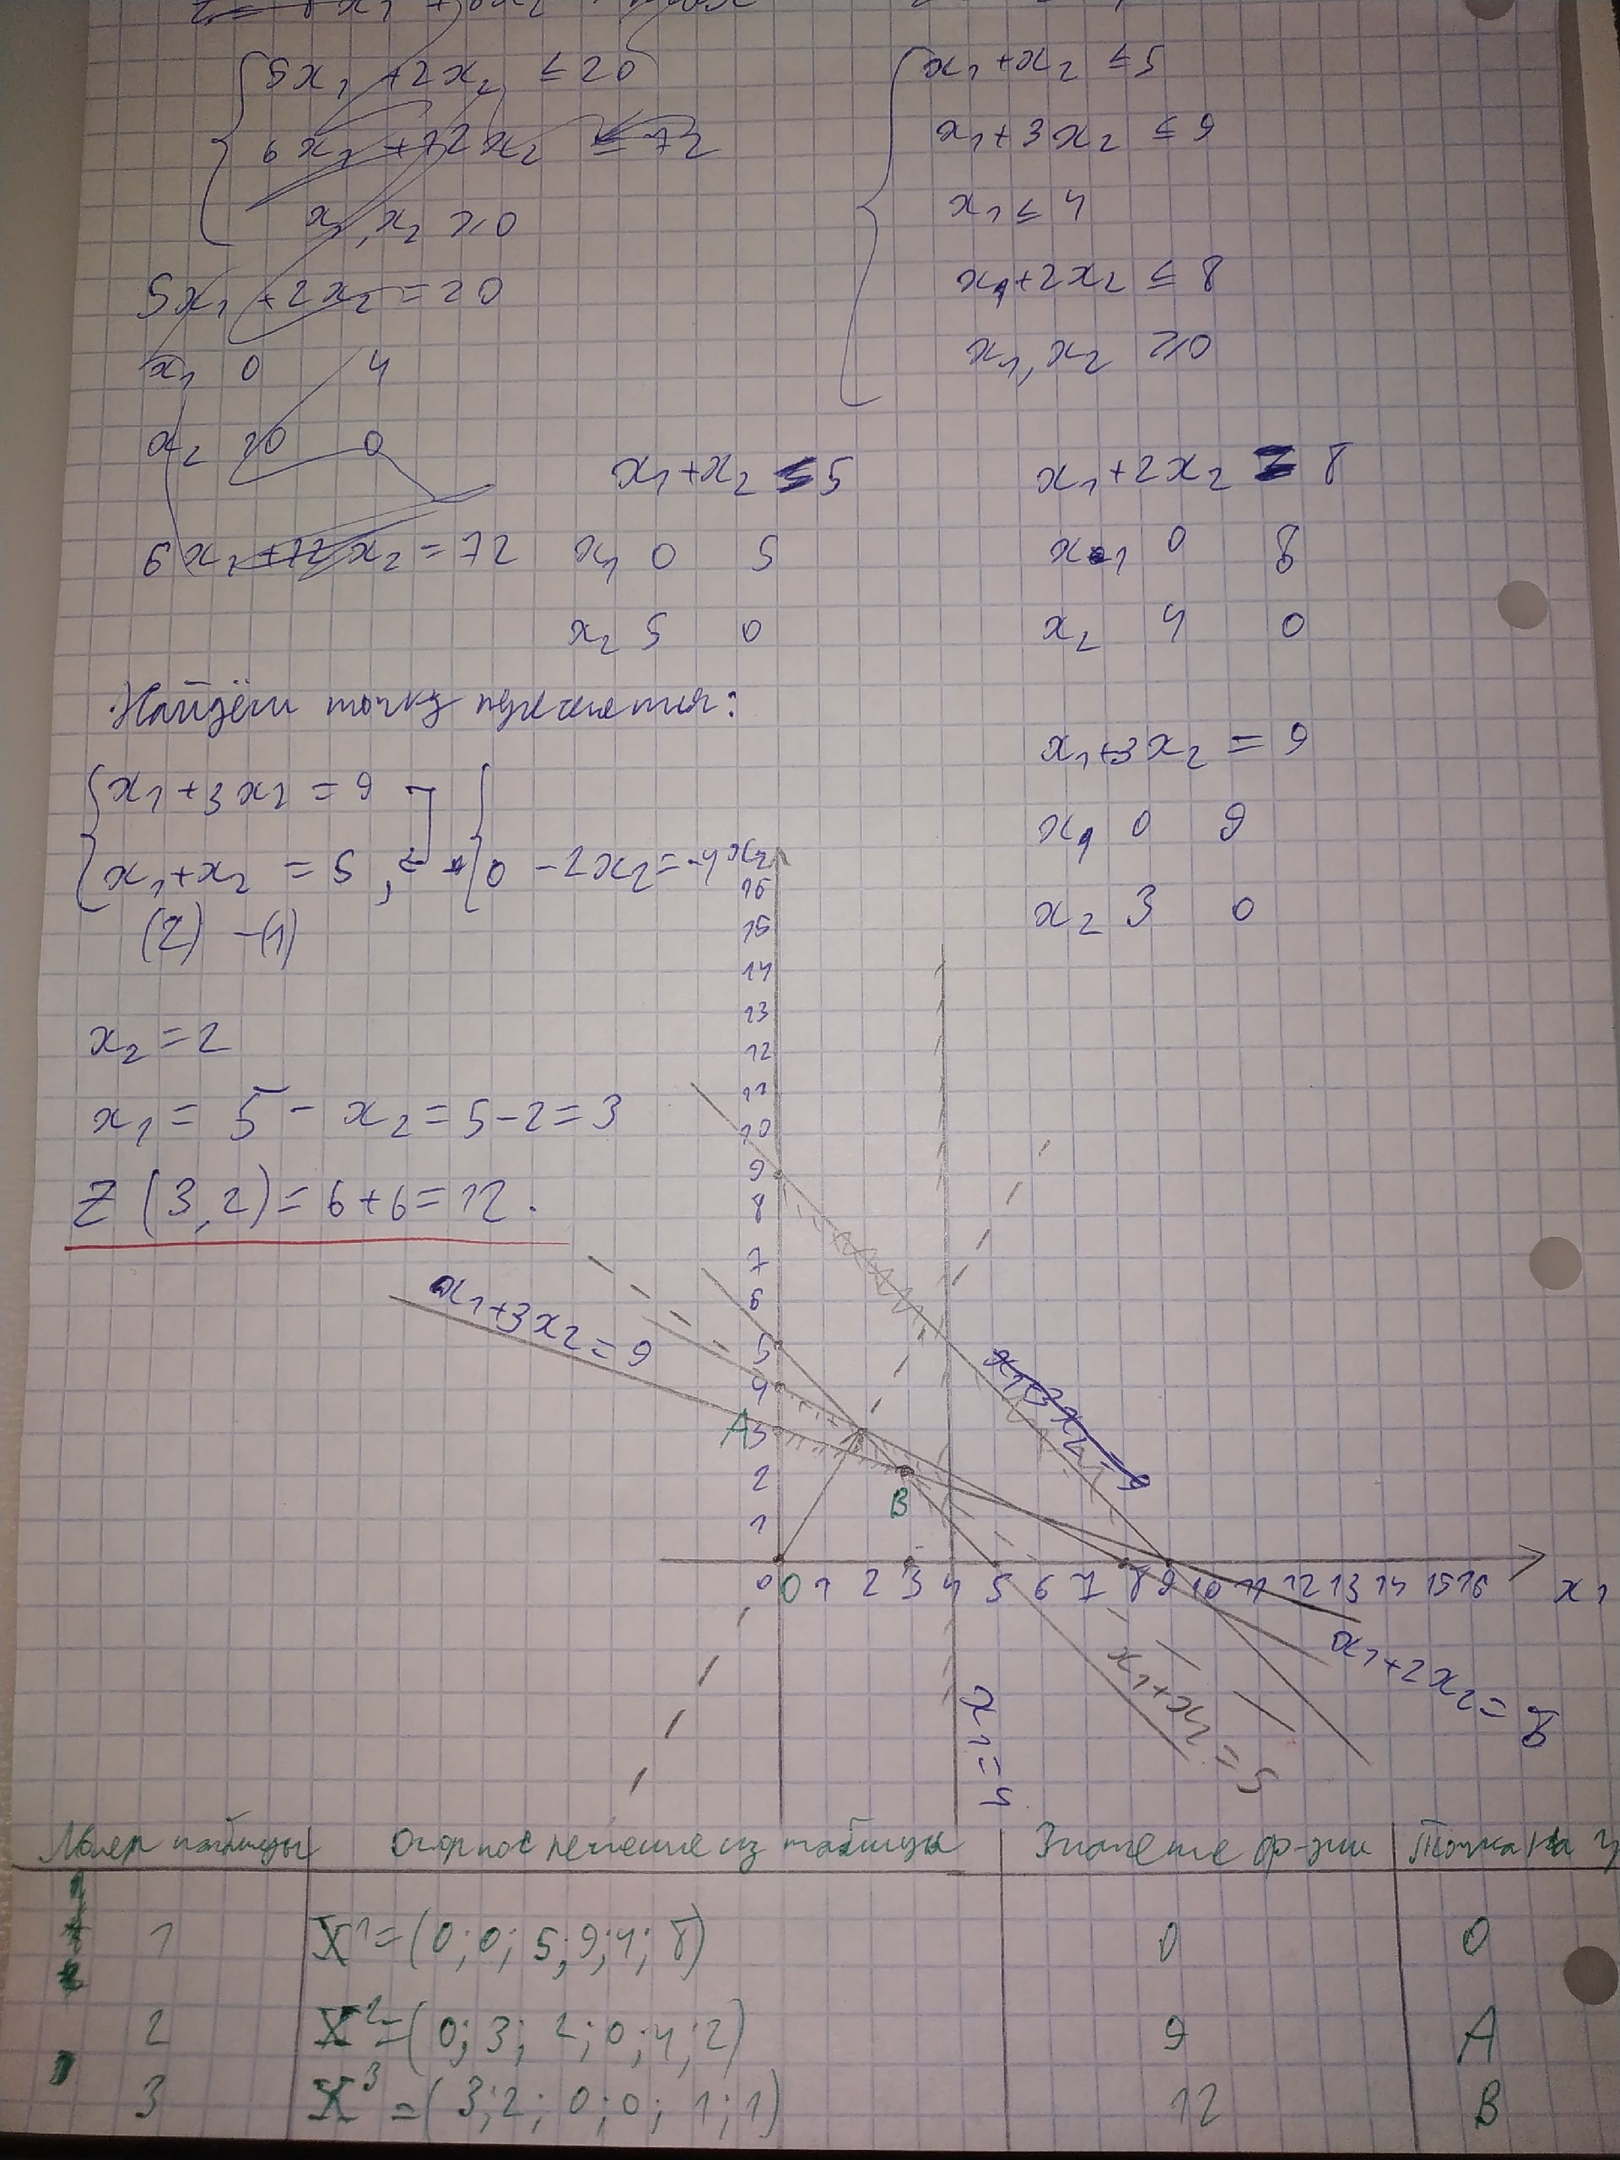 5x₁ + 2x₂ ≤ 20
6x₁ + 12x₂ ≤ 72
x₁, x₂ ≥ 0
5x₁ + 2x₂ = 20
x₁ 0 4
x₂ 20 0
6x₁ + 12x₂ = 72
x₁ + x₂ ≤ 5
x₁ + 3x₂ ≤ 9
x₁ ≤ 4
x₁ + 2x₂ ≤ 8
x₁, x₂ ≥ 0
x₁ + x₂ = 5
x₁ 0 5
x₂ 5 0
x₁ + 2x₂ = 8
x₁ 0 8
x₂ 4 0
x₁ + 3x₂ = 9
x₁ 0 9
x₂ 3 0
Найдём точку
x₁ + 3x₂ = 9
x₁ + x₂ = 5, 0 - 2x₂ = -4
(2) - (1)
x₂ = 2
x₁ = 5 - x₂ = 5 - 2 = 3
Z (3, 2) = 6 + 6 = 12.
x₂
16
15
14
13
12
11
10
9
8
7
6
5
4
A 3
2
1
B
0 0 1 2 3 4 5 6 7 8 9 10 11 12 13 14 15 16 x₁
x₁ + 3x₂ = 9
x₁ + 3x₂ = 9
x₁ + 2x₂ = 8
x₁ + x₂ = 5
x₁ = 4
Номер таблицы Опорное решение из таблицы Значение ф-ции Точка на
1 X¹ = (0; 0; 5; 9; 4; 8) 0 0
2 X² = (0; 3; 2; 0; 4; 2) 9 A
3 X³ = (3; 2; 0; 0; 1; 1) 12 B